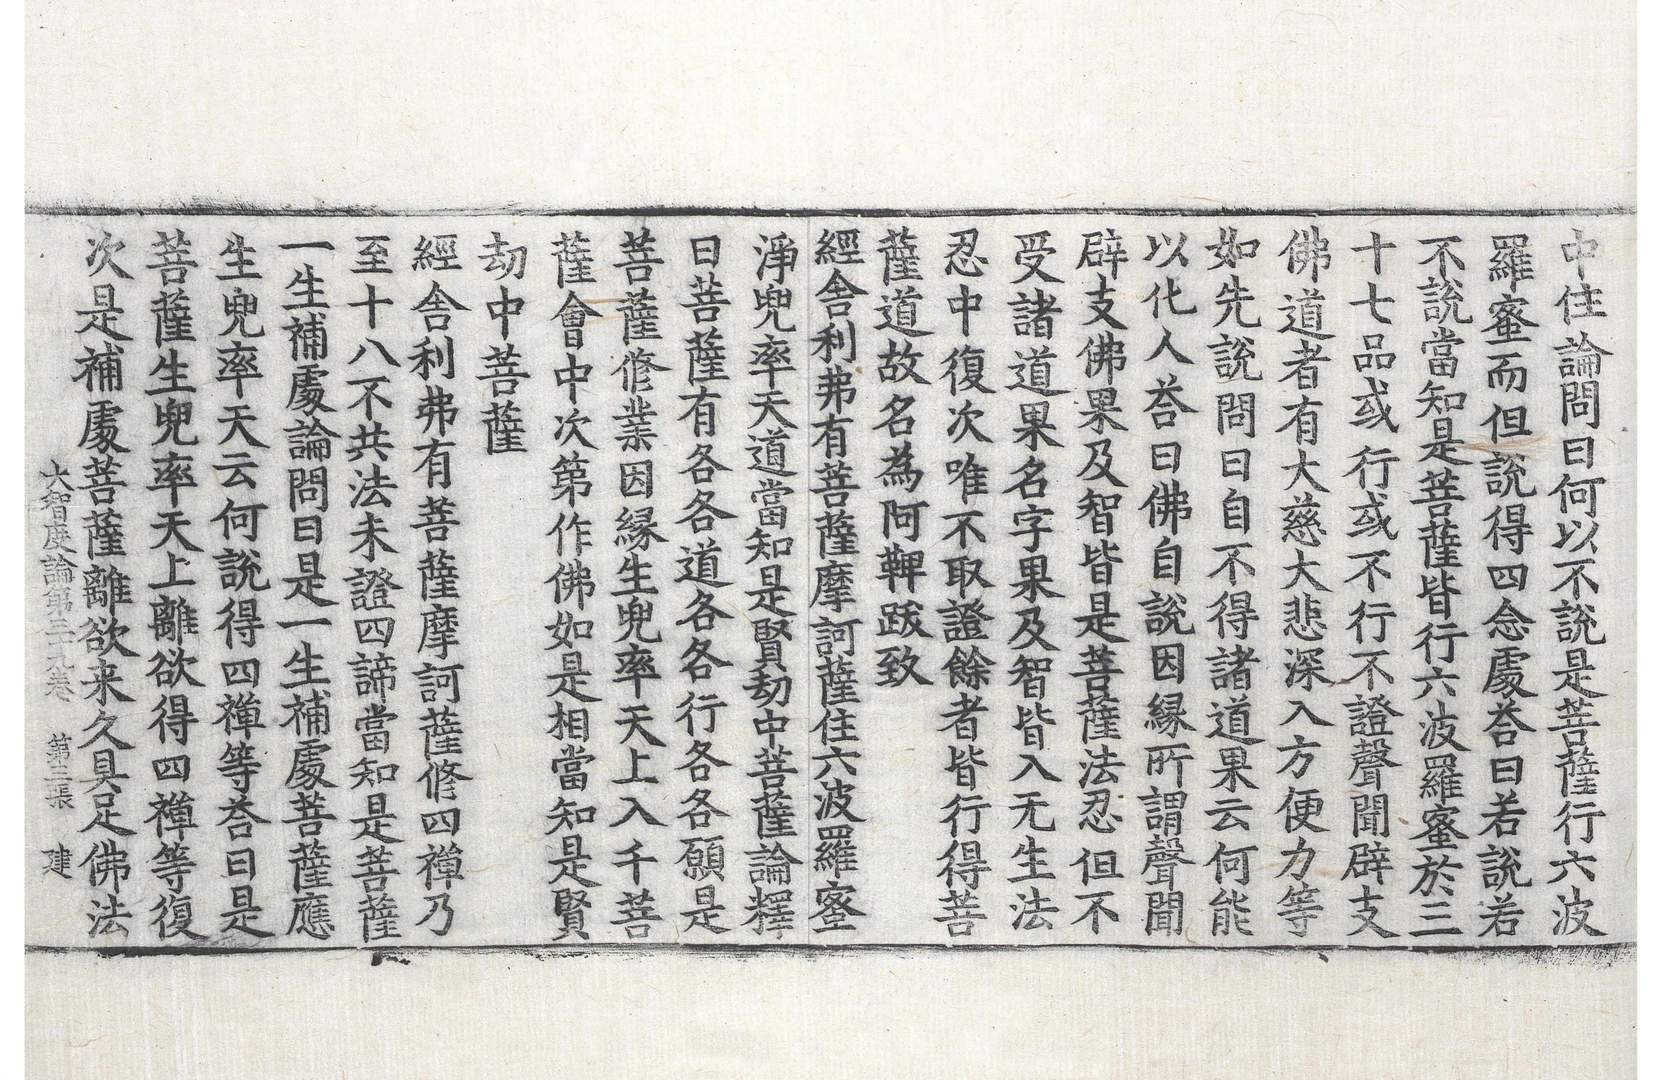 中住論問曰何以不說是菩薩行六波
羅蜜而但說得四念處荅曰若說若
不說當知是菩薩皆行六波羅蜜於三
十七品或行或不行不證聲聞辟支
佛道者有大慈大悲深入方便力等
如先說問曰自不得諸道果云何能
以化人荅曰佛自說因縁所謂聲聞
辟支佛果及智皆是菩薩法忍但不
受諸道果名字果及智皆入无生法
忍中復次唯不取證餘者皆行得菩
薩道故名為阿鞞跋致
經舍利弗有菩薩摩訶薩住六波羅蜜
淨兜率天道當知是賢劫中菩薩論釋
曰菩薩有各各道各各行各各願是
菩薩修業因縁生兜率天上入千菩
薩會中次第作佛如是相當知是賢
劫中菩薩
經舍利弗有菩薩摩訶薩修四禪乃
至十八不共法未證四諦當知是菩薩
一生補處論問曰是一生補處菩薩應
生兜率天云何說得四禪等荅曰是
菩薩生兜率天上離欲得四禪等復
次是補處菩薩離欲来久具足佛法
大智度論第三九卷 第三張 建